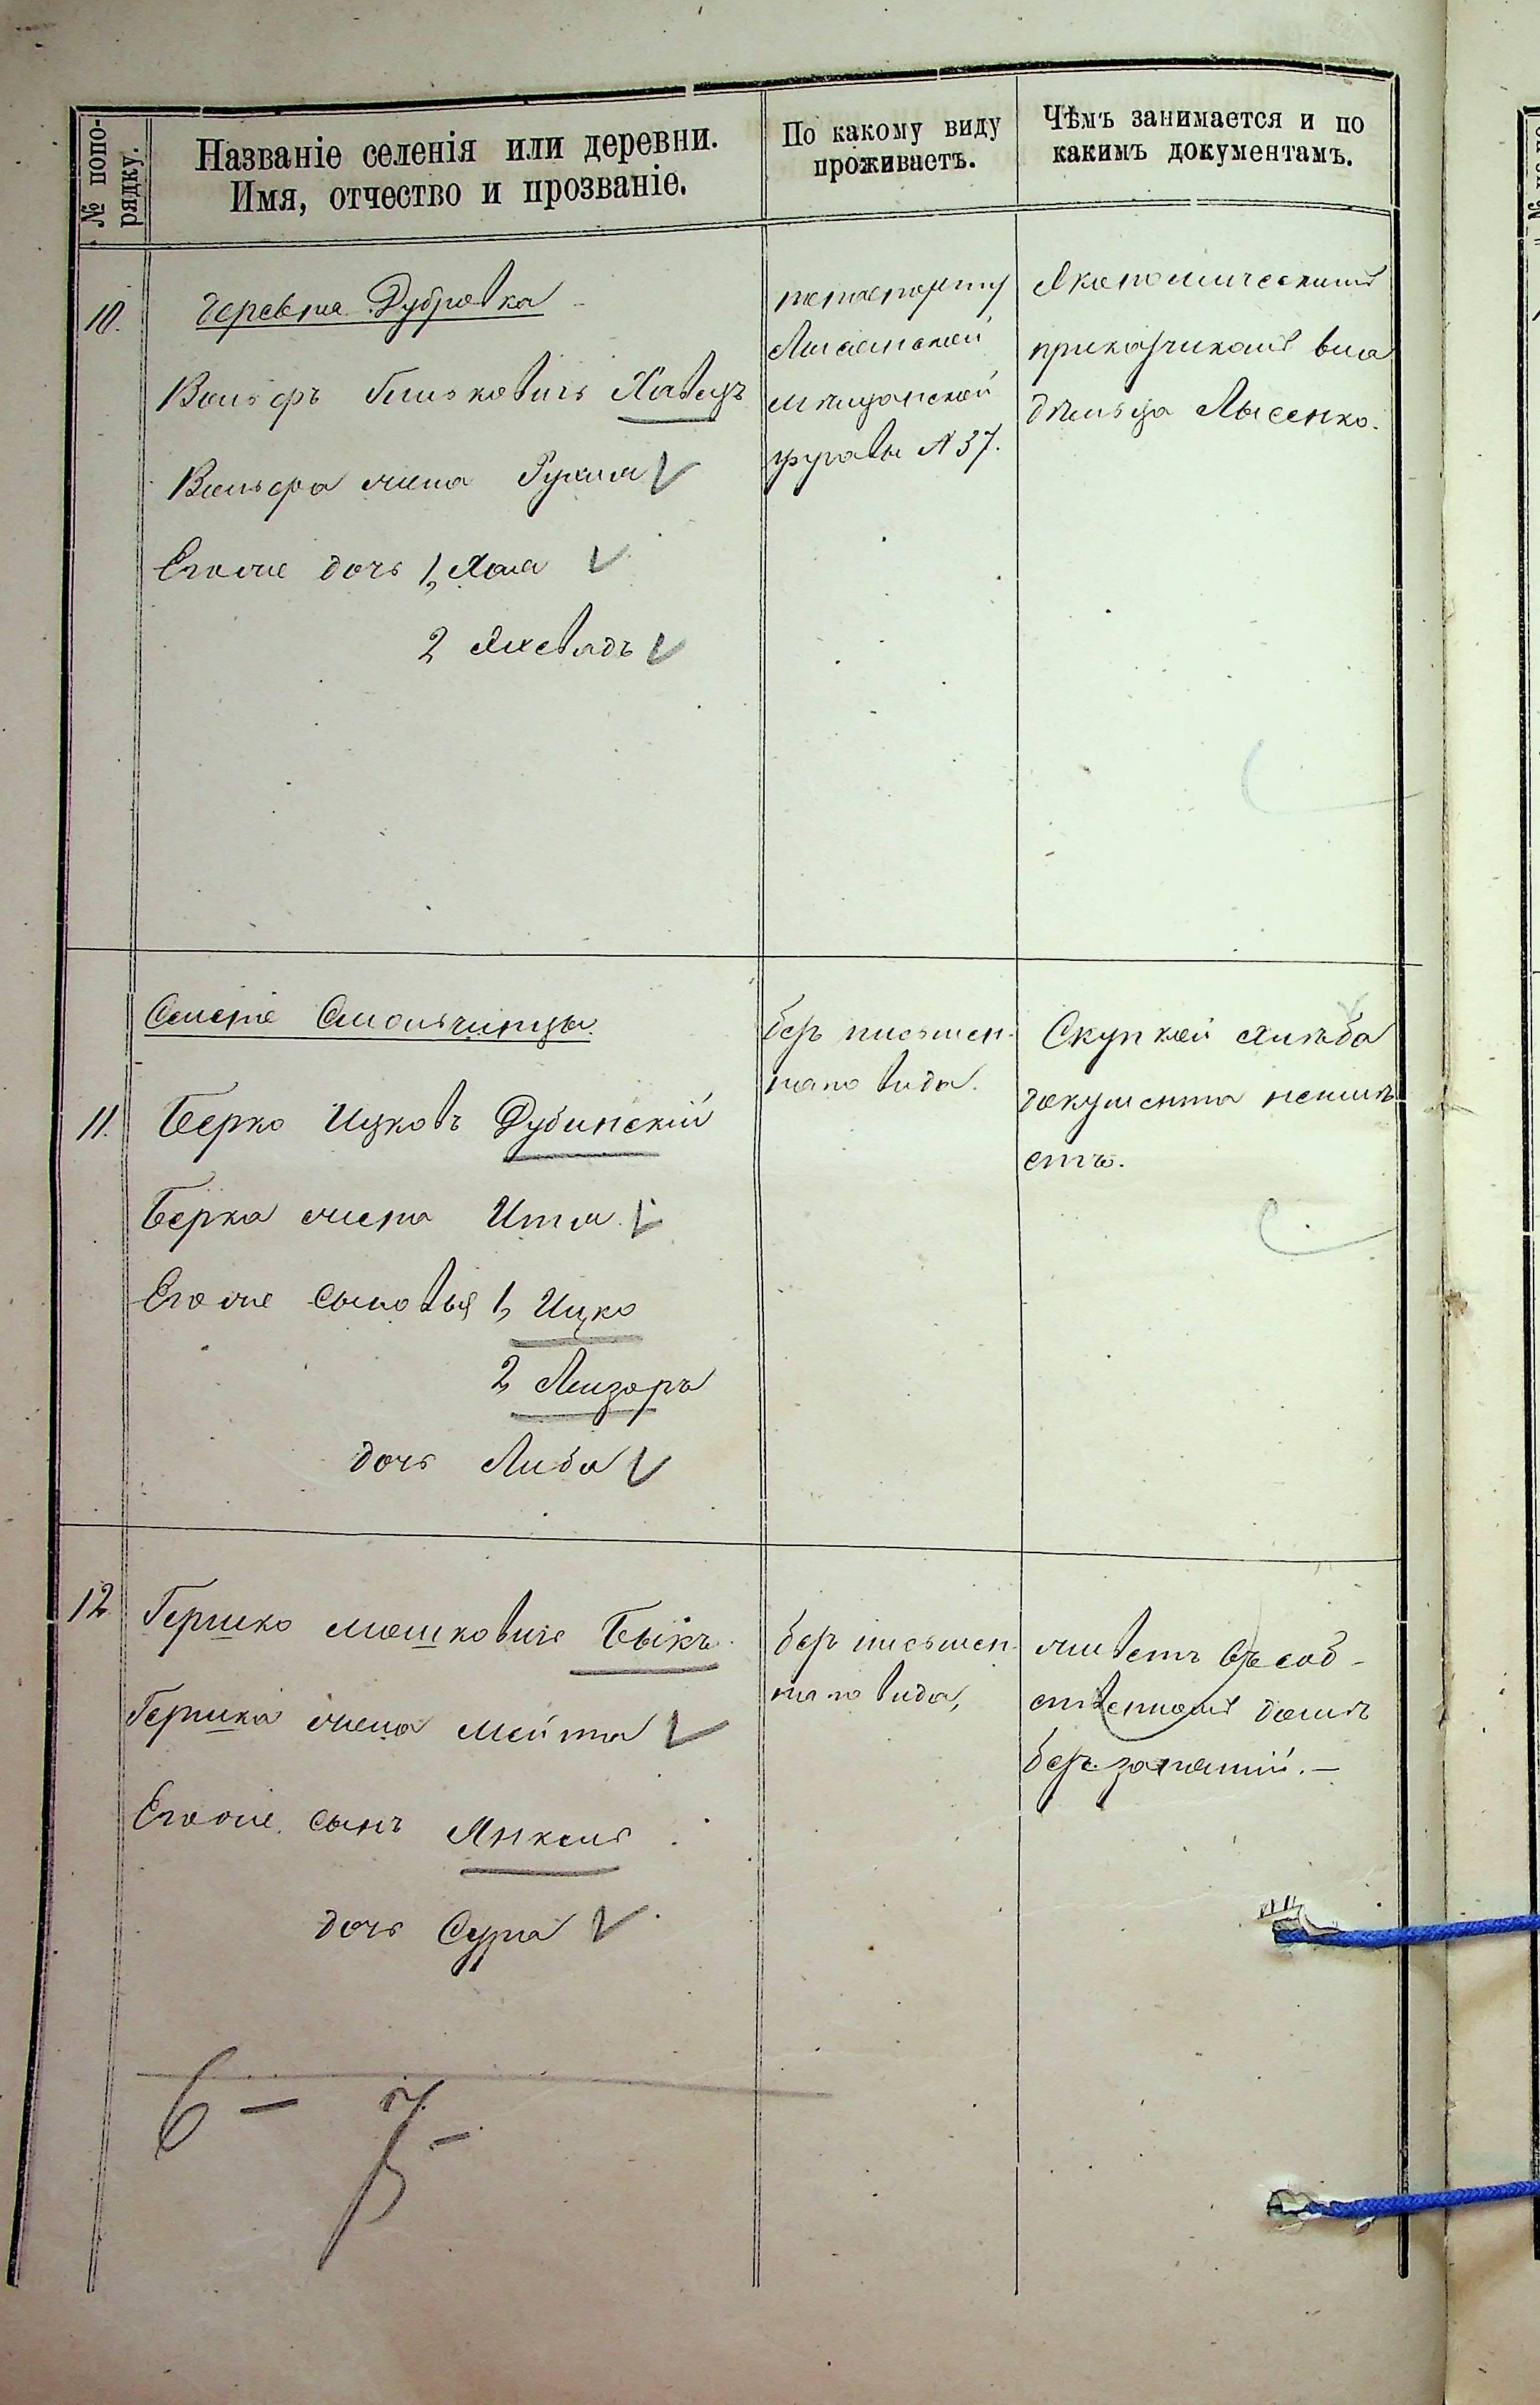 № попо-
рядку.
Названіе селенія или деревни.
Имя, отчество и прозваніе.
По какому виду
проживаетъ.
Чѣмъ занимается и по
какимъ документамъ.
10.
деревня Дубровка
Вольфъ Хавецъ
Вольфа жена Рухля
Егоже дочь 1, Хая
2
попаспорту
Лисянской
мѣщанской
управы № 37.
Экономическимъ
прикащикомъ вла
дѣльца Лысенко.
Селеніе Смольчинцы.
11.
Берко Ицковъ Дубинскій
Берка жена Итля
Егоже сыновья 1, Ицко
2, Лейзоръ
дочь Либа
безъ письмен-
наго вида.
Скупкой хлѣба
документа неимѣ
етъ.
12
Гершко Мошковичъ Быкъ.
Гершка жена Мейта
Егоже сынъ Янкель
дочь Сура
безъ письмен-
наго вида,
живетъ въ соб-
ственномъ домѣ
безъ занятій. —
6 —